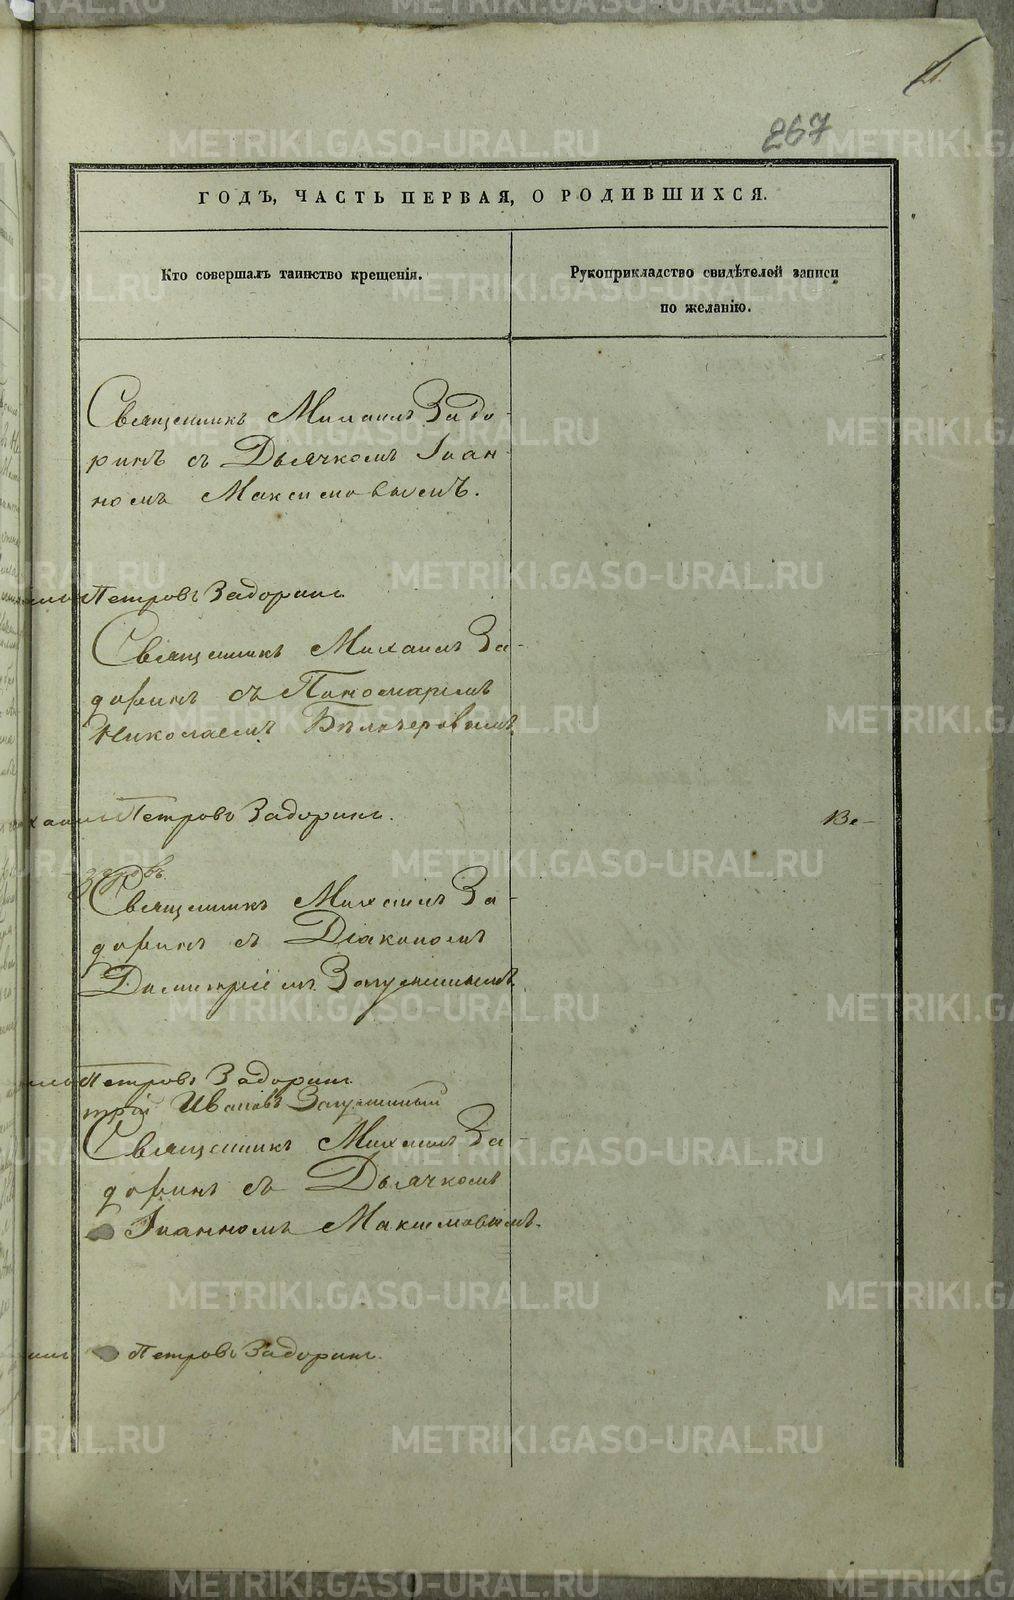 21.
267
ГОДЪ, ЧАСТЬ ПЕРВАЯ, О РОДИВШИХСЯ.
Кто совершалъ таинство крещенія.
Рукоприкладство свидѣтелей записи
по желанію.
Священникъ Михаилъ Задо-
ринъ съ Дьячкомъ Іоан-
номъ Максимовымъ.
Петровъ Задоринъ
Священникъ Михаилъ За-
доринъ съ Пономаремъ
Николаемъ
хаилъ Петровъ Задоринъ.
Ве-
Священникъ Михаилъ За-
доринъ съ Діакономъ
Димитріемъ
Петровъ Задоринъ
трій Ивановъ
Священникъ Михаилъ За-
доринъ съ Дьячкомъ
Іоанномъ Максимовымъ.
илъ Петровъ Задоринъ.
METRIKI.GASO-URAL.RU